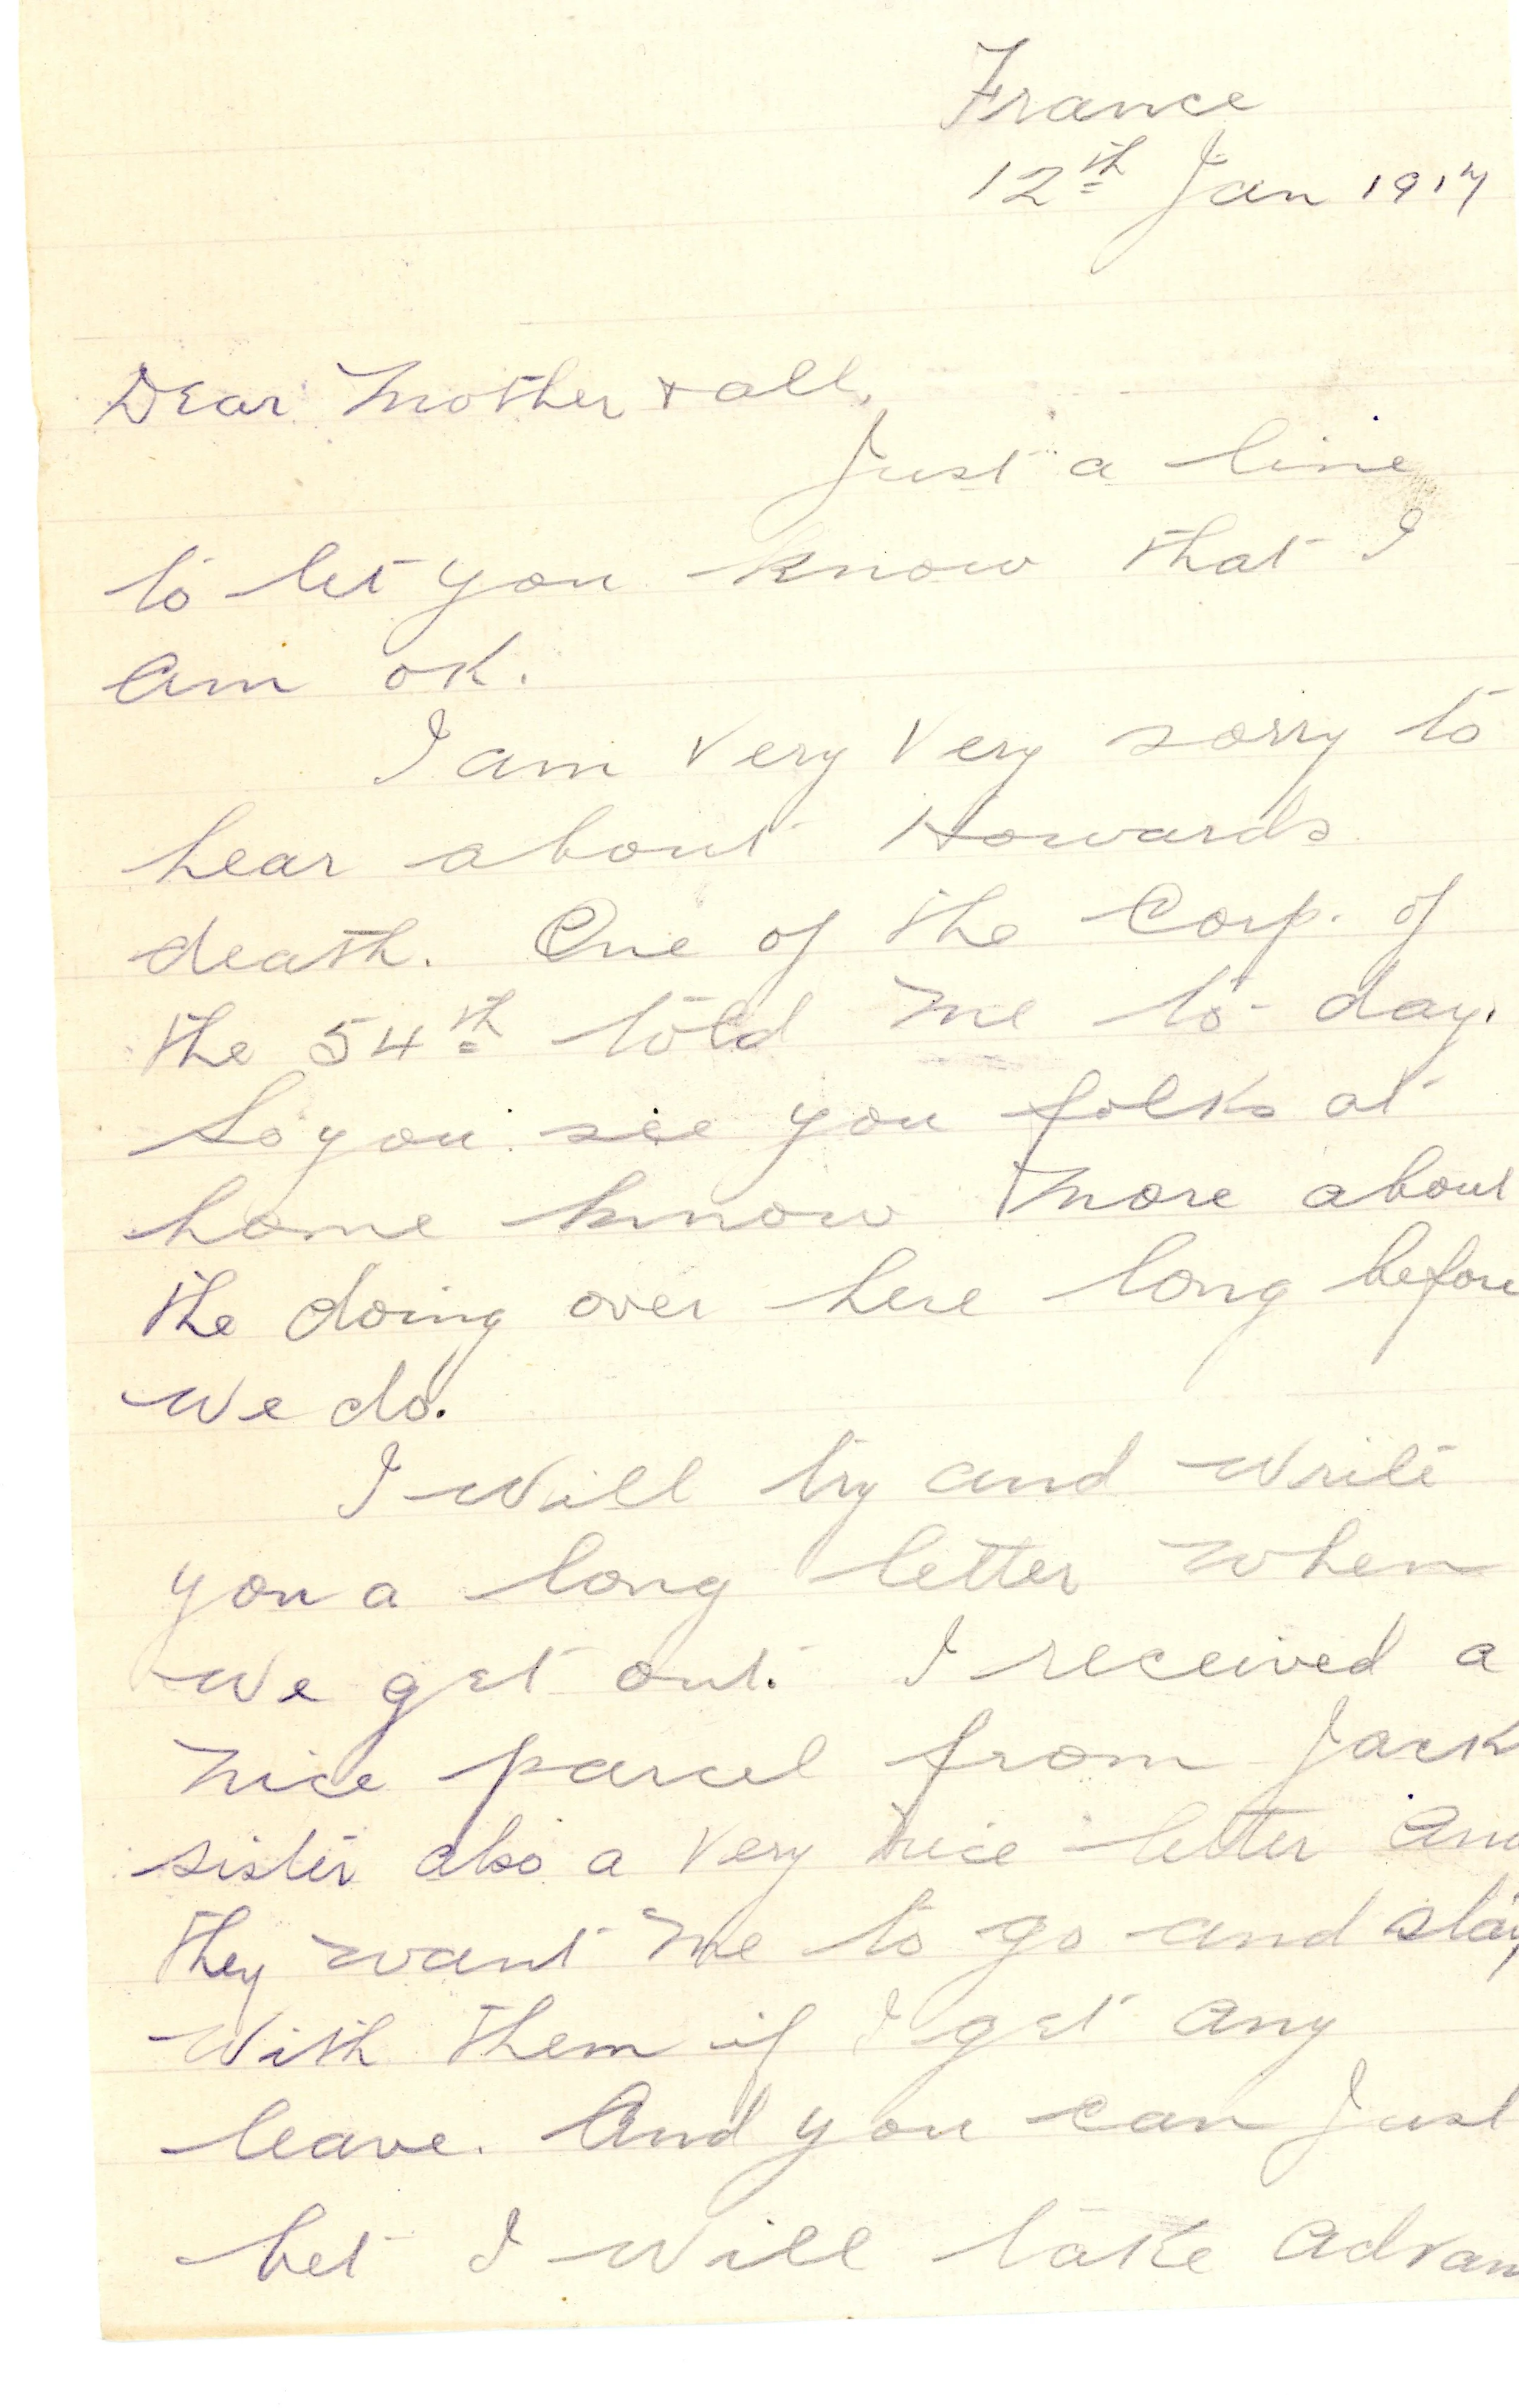 France
12th Jan 1917
Dear Mother & all,
Just a line
to let you know that I
am ok.
I am very very sorry to
hear about Howards
death. One of the Corp. of
the 54th told me to-day.
So you see you folks at
home know more about
the doing over here long before
we do.
I will try and write
you a long letter when
we get out. I received a
nice parcel from Jack
sister also a very nice letter and
they want me to go and stay
with them if I get any
leave. And you can just
bet I will take advan